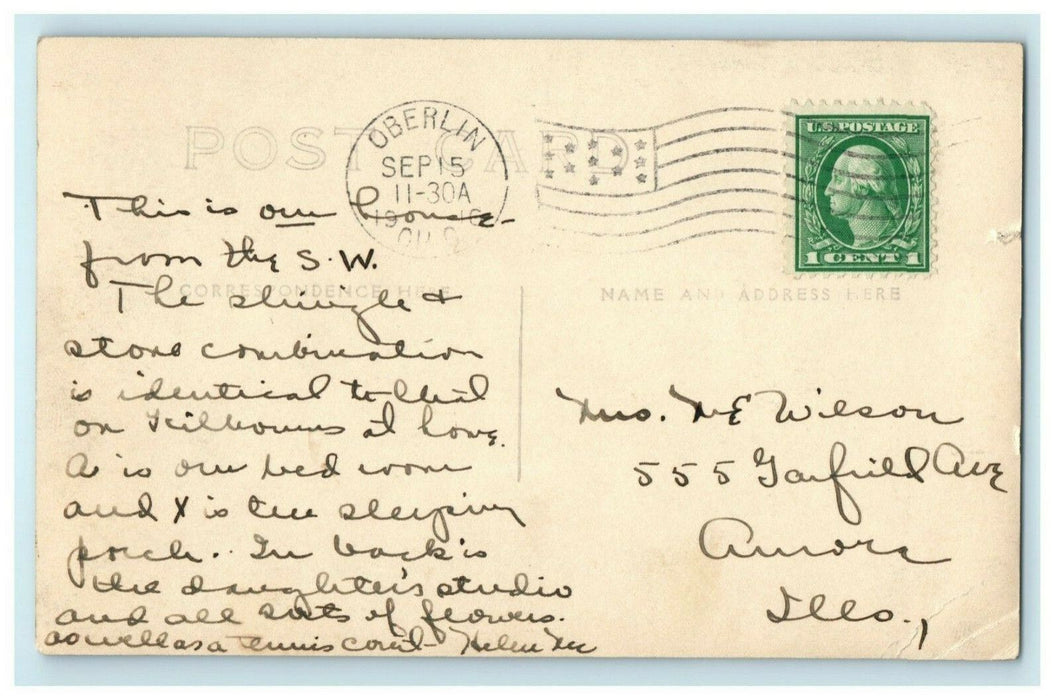 POST CARD
OBERLIN
SEP 15
11-30A
U.S. POSTAGE
1 CENT 1
This is our house
from the S.W.
CORRESPONDENCE HERE
NAME AND ADDRESS HERE
The shingle +
stone combination
is identical to that
on at home.
A is our bed room
and X is the sleeping
porch. In back is
the daughter's studio
and all sorts of flowers.
as well as a tennis court - Helen
Mrs. Wilson
555 Garfield Ave
Aurora
Ills.,